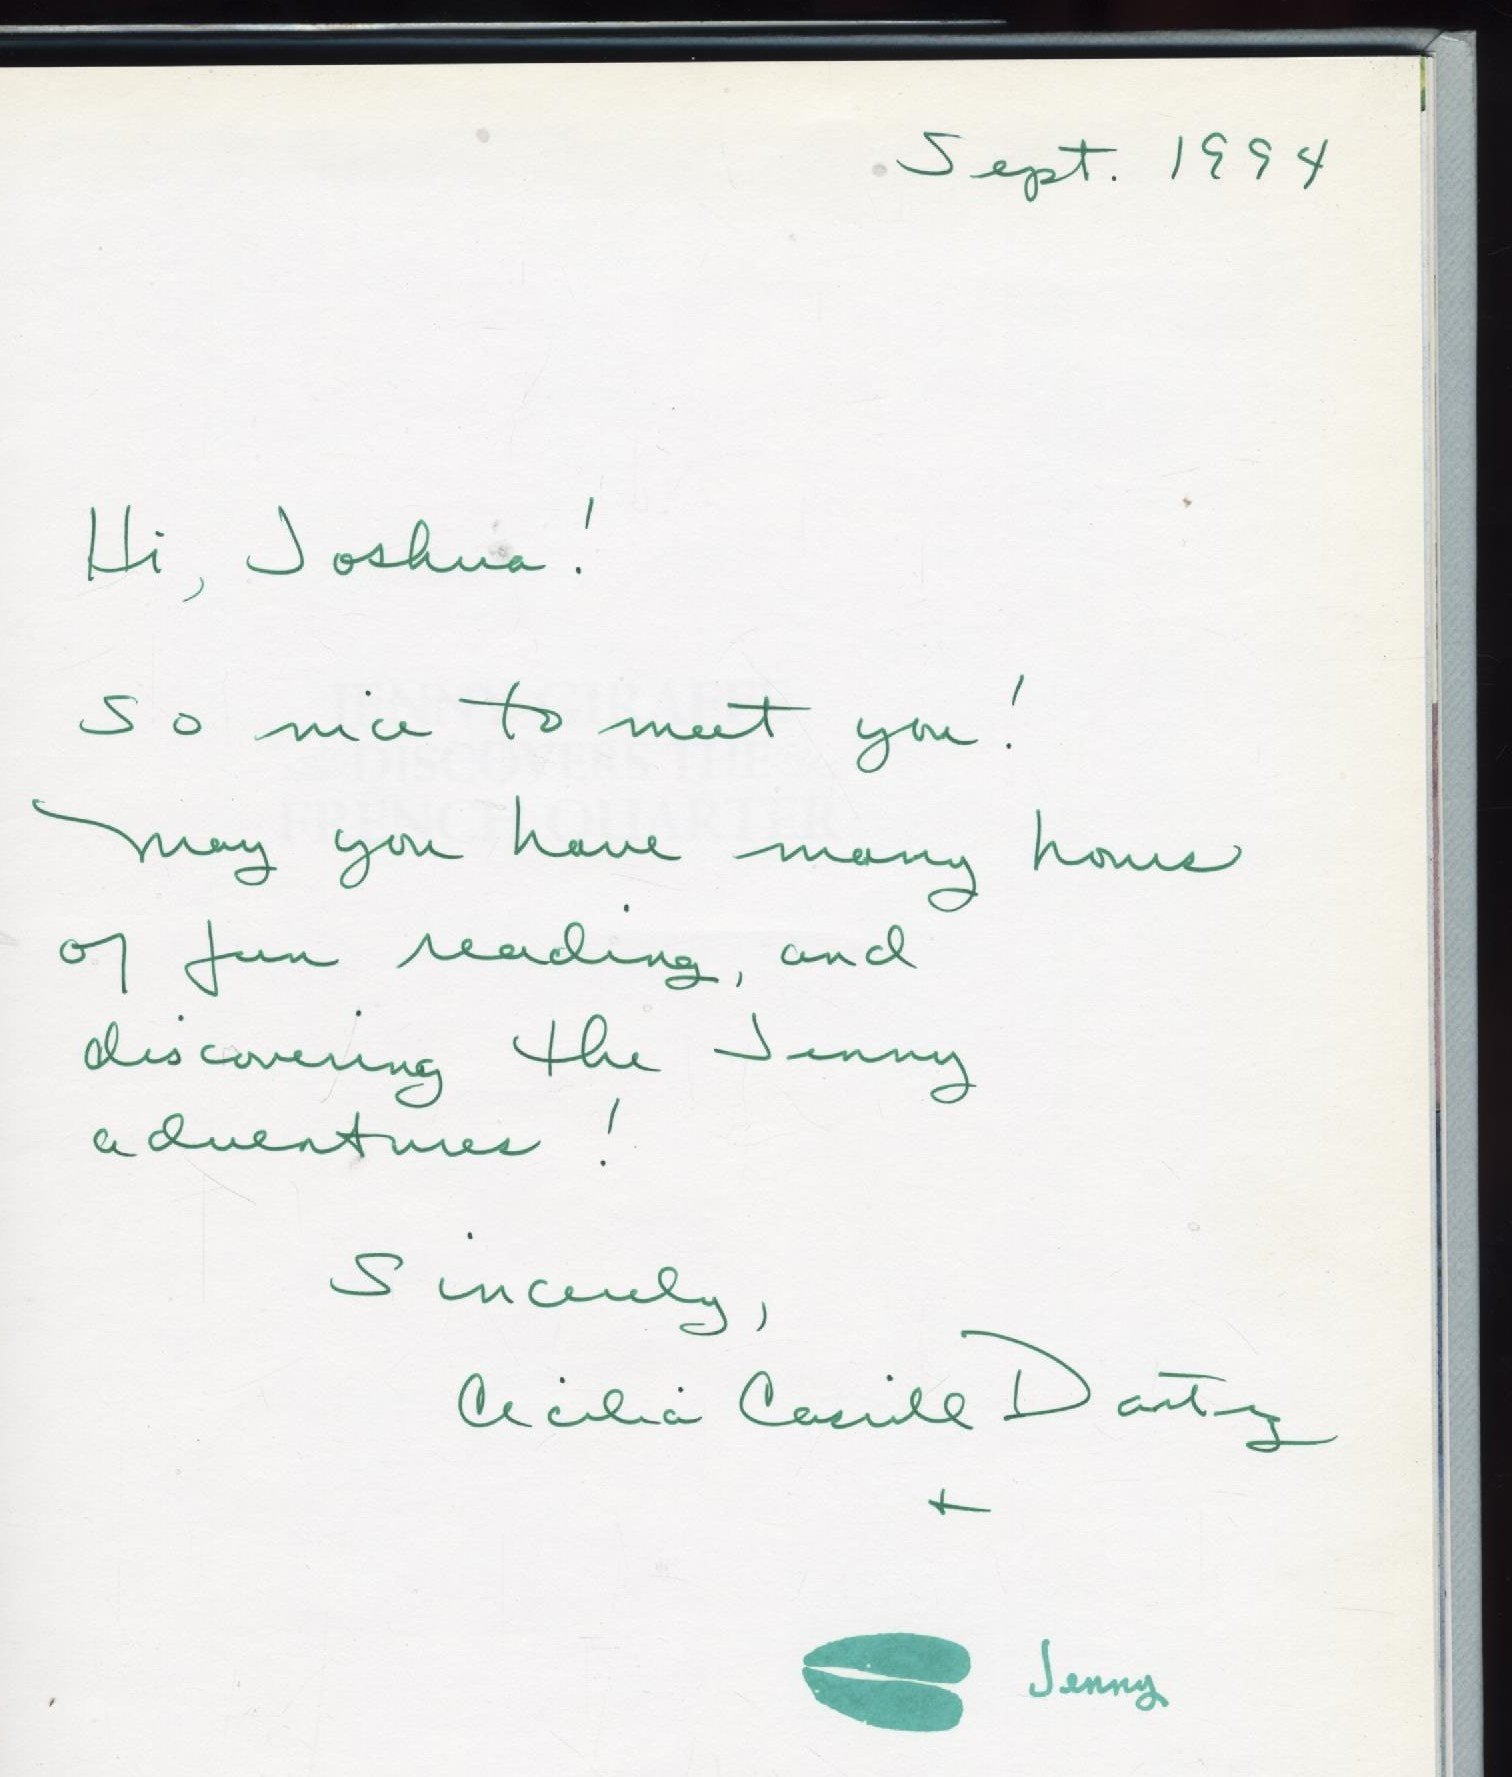 Sept. 1994
Hi, Joshua!
So nice to meet you!
JENNY GIRAFFE
DISCOVERS THE
FRENCH QUARTER
May you have many hours
of fun reading, and
discovering the Jenny
adventures!
Sincerely,
Cecilia Casrill Dartez
+
Jenny